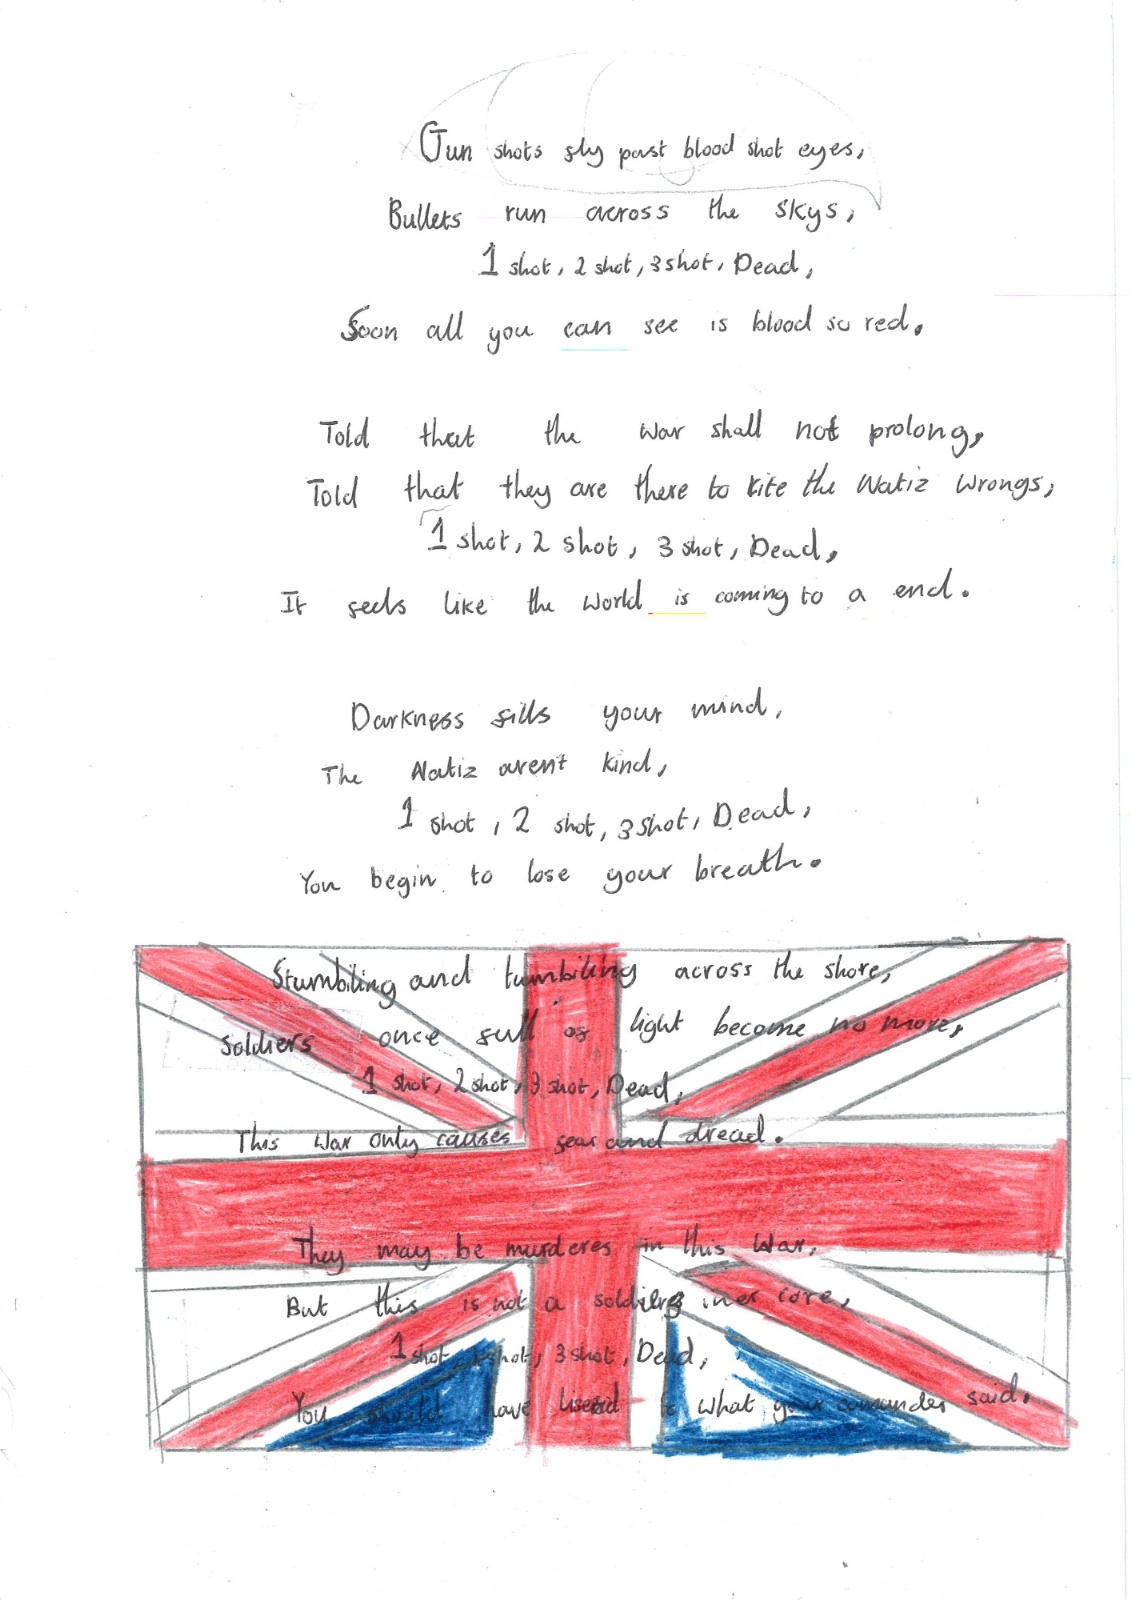 Gun shots fly past blood shot eyes,
Bullets run across the skys,
1 shot, 2 shot, 3 shot, Dead,
Soon all you can see is blood so red.
Told that the war shall not prolong,
Told that they are there to rite the Natiz wrongs,
1 shot, 2 shot, 3 shot, Dead,
It feels like the world is coming to a end.
Darkness fills your mind,
The Natiz arent kind,
1 shot, 2 shot, 3 shot, Dead,
You begin to lose your breath.
Stumbiling and tumbiling across the shore,
Soldiers once full of light become no more,
1 shot, 2 shot, 3 shot, Dead,
This war only causes fear and dread.
They may be murderes in this war,
But this is not a soldiers iner core,
1 shot, 2 shot, 3 shot, Dead,
You should have to what your comander said.